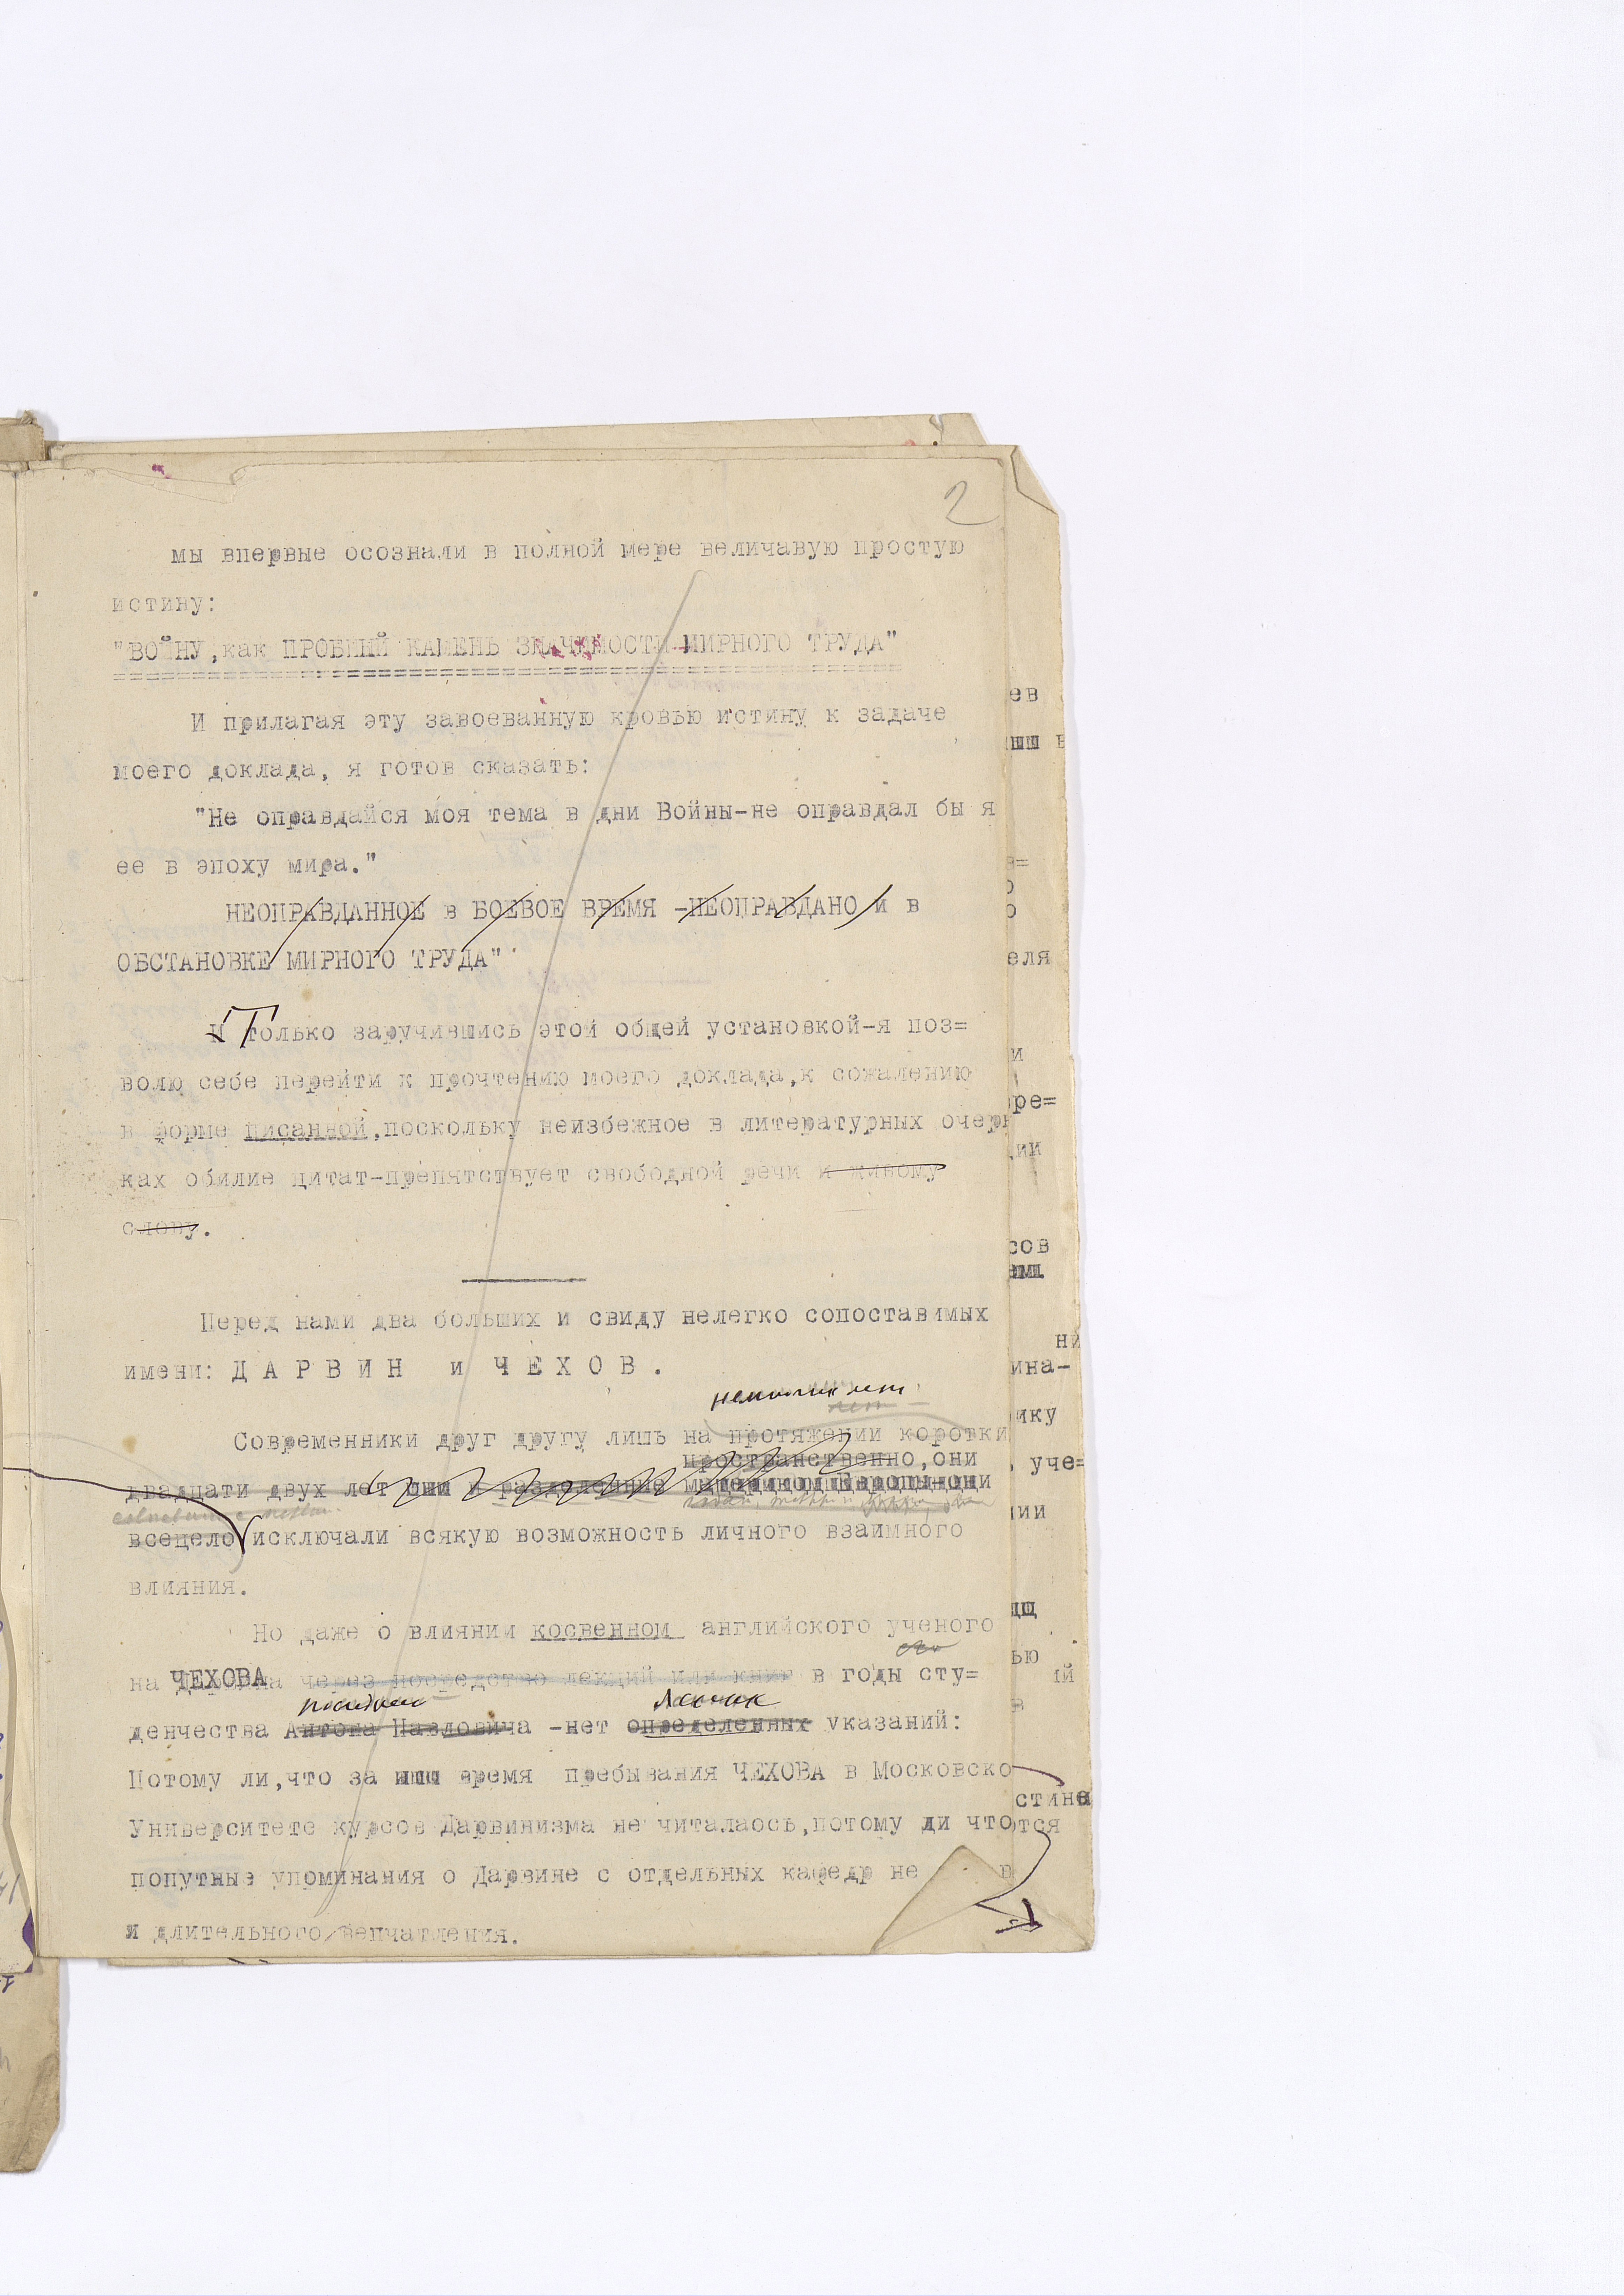 2
мы впервые осознали в полной мере величавую простую
истину:
"ВОЙНУ,как ПРОБНЫЙ КАМЕНЬ ЗНАЧИМОСТИ МИРНОГО ТРУДА"
И прилагая эту завоеванную кровью истину к задаче
моего доклада, я готов сказать:
"Не оправдайся моя тема в дни Войны-не оправдал бы я
ее в эпоху мира."
НЕОПРАВДАННОЕ в БОЕВОЕ ВРЕМЯ -НЕОПРАВДАНО и в
ОБСТАНОВКЕ МИРНОГО ТРУДА"
И Только заручившись этой общей установкой-я поз=
волю себе перейти к прочтению моего доклада,к сожалению
в форме писанной,поскольку неизбежное в литературных очер
ках обилие цитат-препятствует свободной речи и живому
слову.
Перед нами два больших и свиду нелегко сопоставимых
имени: ДАРВИН и ЧЕХОВ.
Современники друг другу лишь на протяжении коротки
пространственно,они
двадцати двух лет они и разделенные материком Европы-они
всецело исключали всякую возможность личного взаимного
влияния.
Но даже о влиянии косвенном английского ученого
на ЧЕХОВА через посредство лекций или книг в годы сту=
денчества Антона Павловича -нет определенных указаний:
Потому ли,что за время пребывания ЧЕХОВА в Московско
Университете курсов Дарвинизма не читалаось,потому ди что
попутные упоминания о Дарвине с отдельных кафедр не
и длительного вепчатления.
ев
еля
и
ре=
ии
сов
ни
ина-
ику
, уче=
ии
ью
ий
в
стина
тся